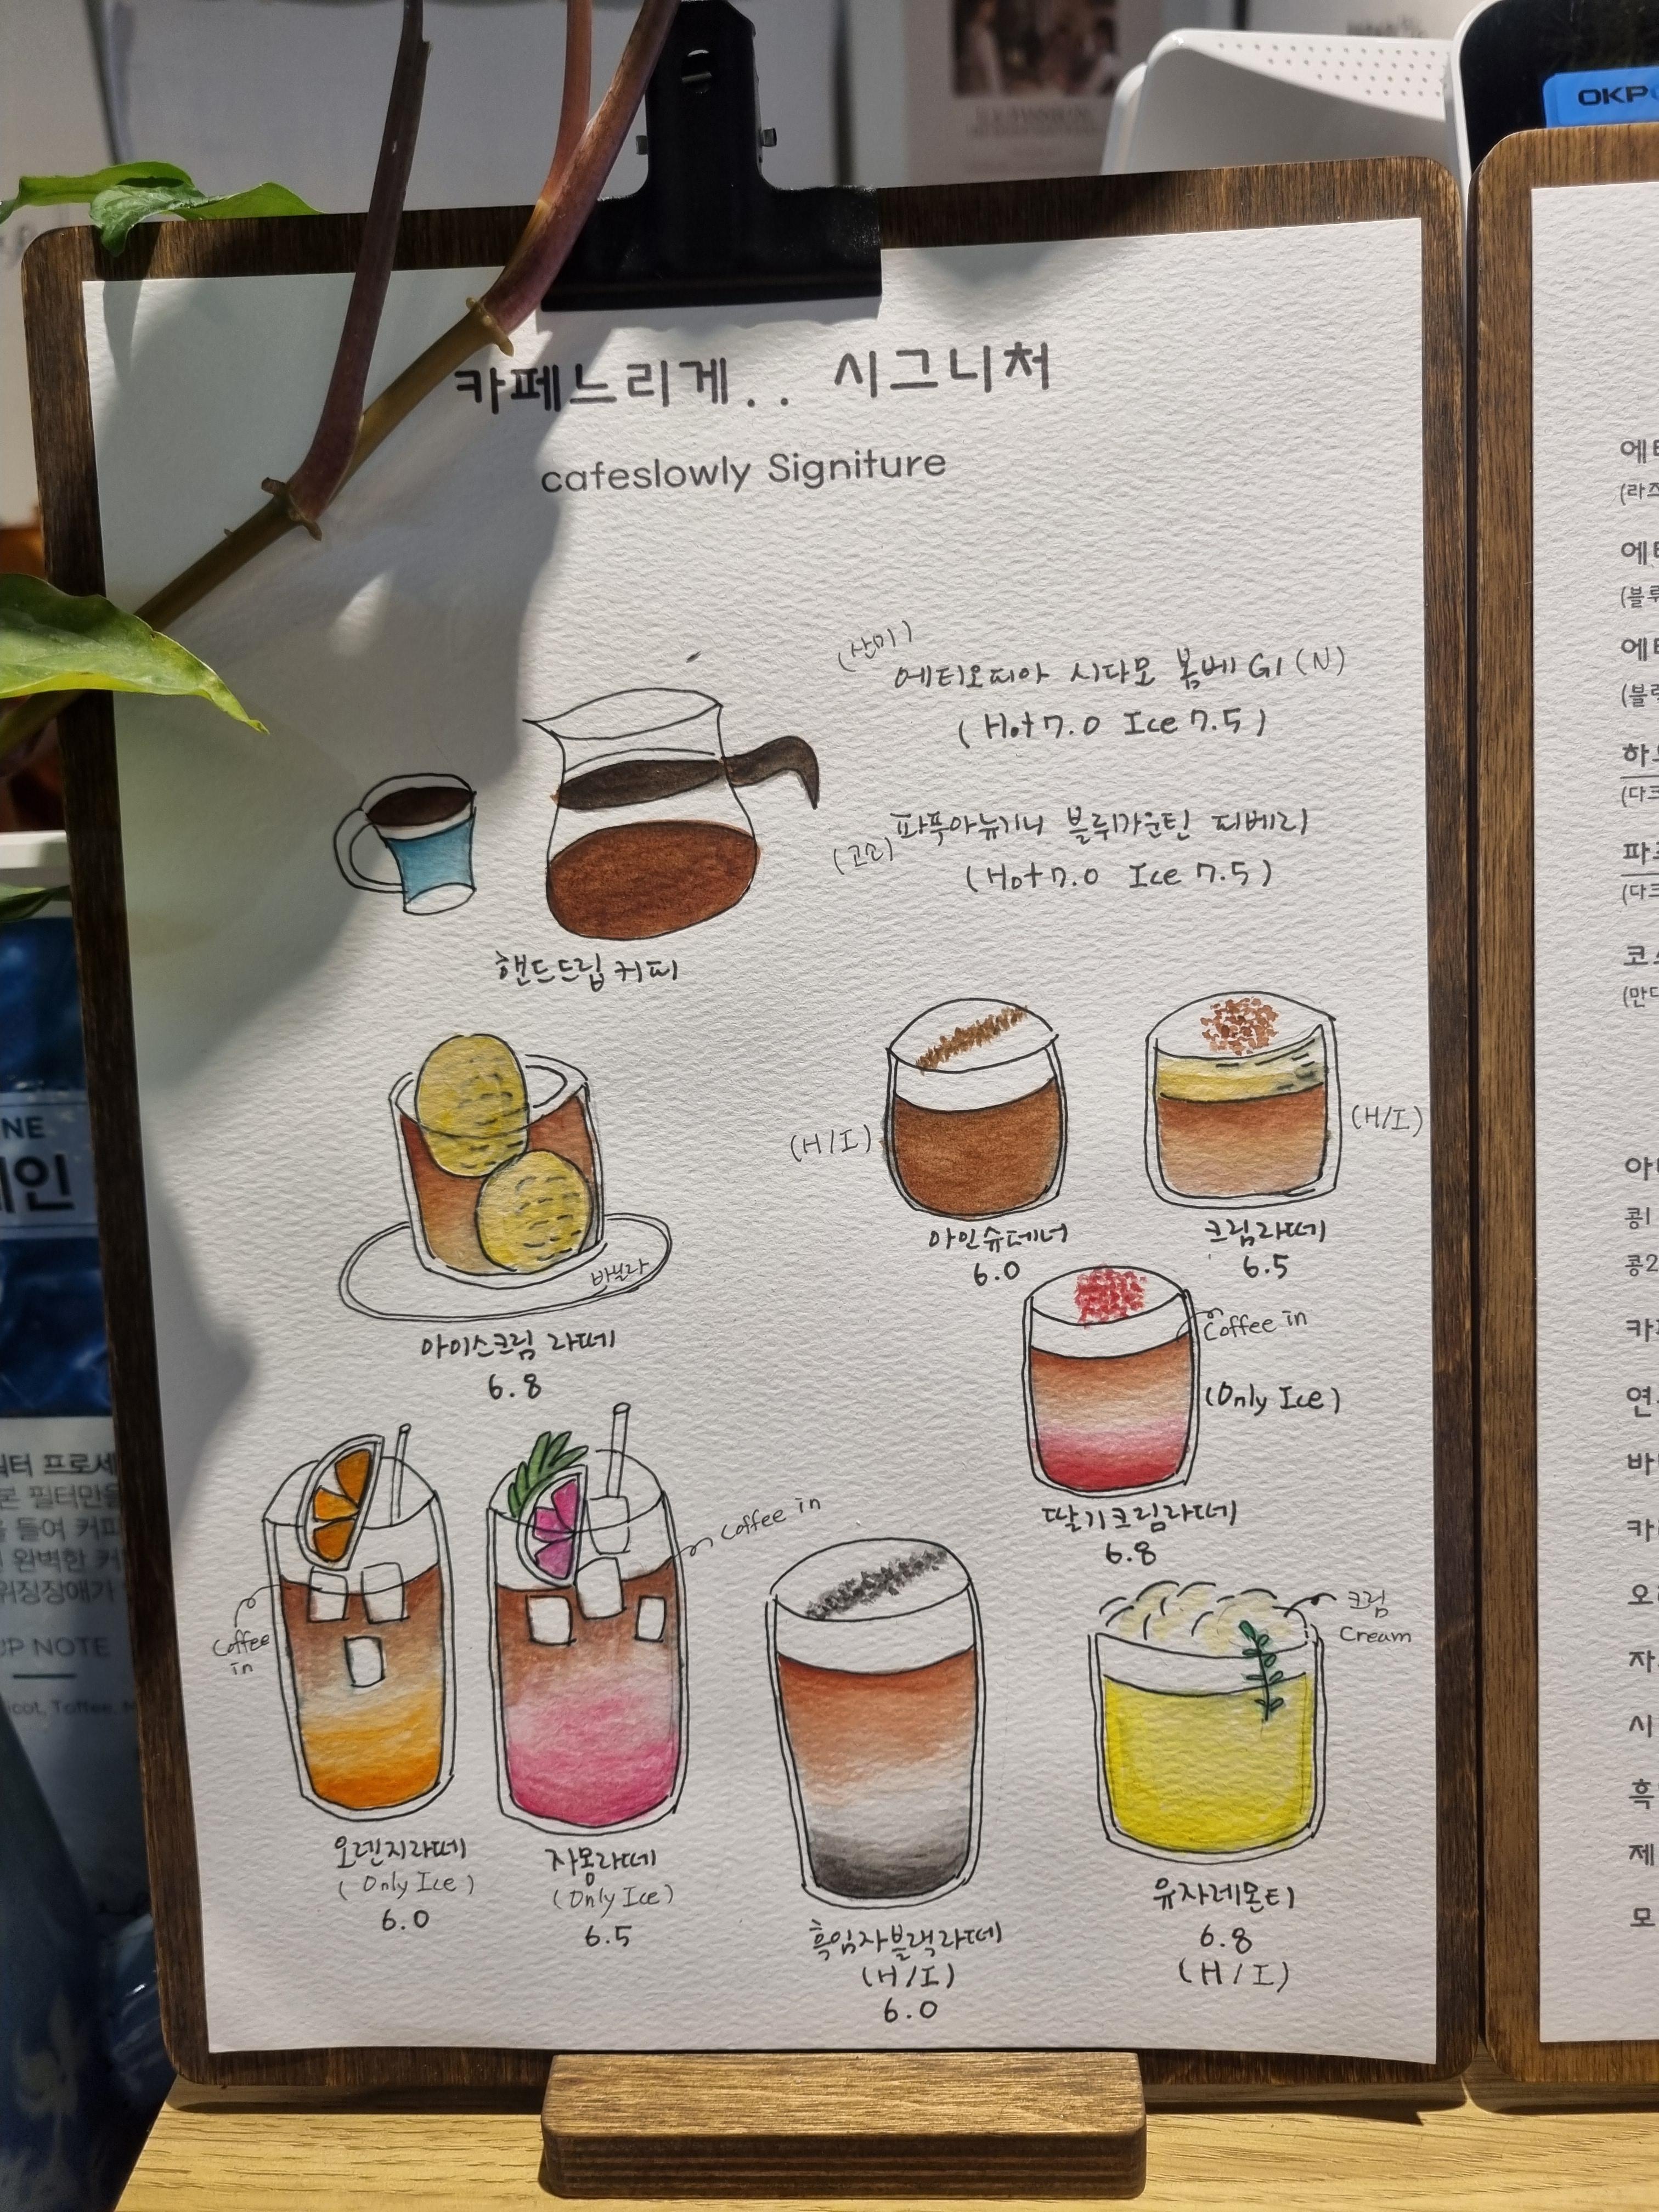 OKP
카페느리게.. 시그니처
cafeslowly Signiture
(산미)
에티오피아 시다모 봄베 G1 (N)
(Hot 7.0 Ice 7.5)
(고소)
파푸아뉴기니 블루마운틴 피베리
(Hot 7.0 Ice 7.5)
핸드드립 커피
바닐라
아이스크림 라떼
6.8
(H/I)
아인슈페너
6.0
(H/I)
크림라떼
6.5
Coffee in
(Only Ice)
딸기크림라떼
6.8
Coffee
in
오렌지라떼
(Only Ice)
6.0
Coffee in
자몽라떼
(Only Ice)
6.5
흑임자블랙라떼
(H/I)
6.0
크림
Cream
유자레몬티
6.8
(H/I)
NE
인
터 프로세
본 필터만을
들여 커피
완벽한 커
위장장애가
UP NOTE
icot, Toffee,
에티
(라즈
에티
(블루
에티
(블루
하
(다크
파
(다크
코스
(만다
아
콩1
콩2
카
연
바
카
오
자
시
흑
제
모